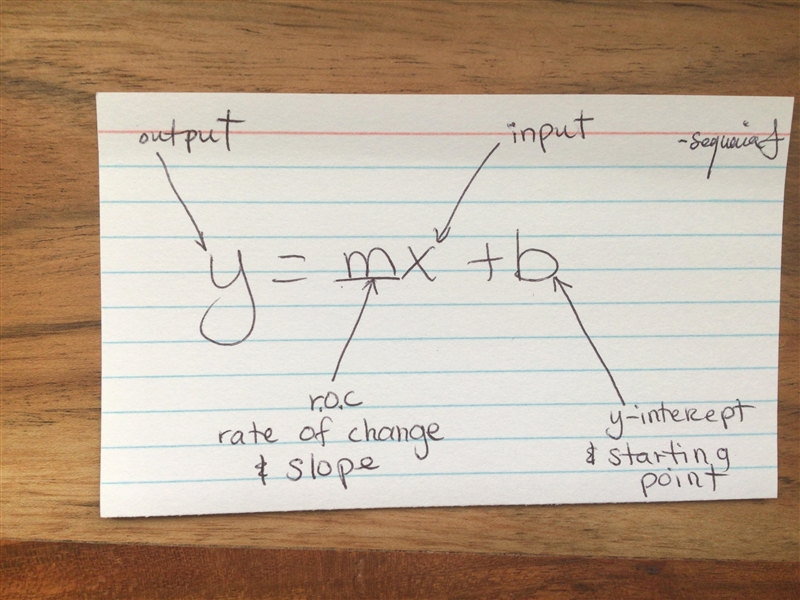 output
input
-sequoia f
y = mx + b
r.o.c
rate of change
& slope
y-intercept
& starting
point